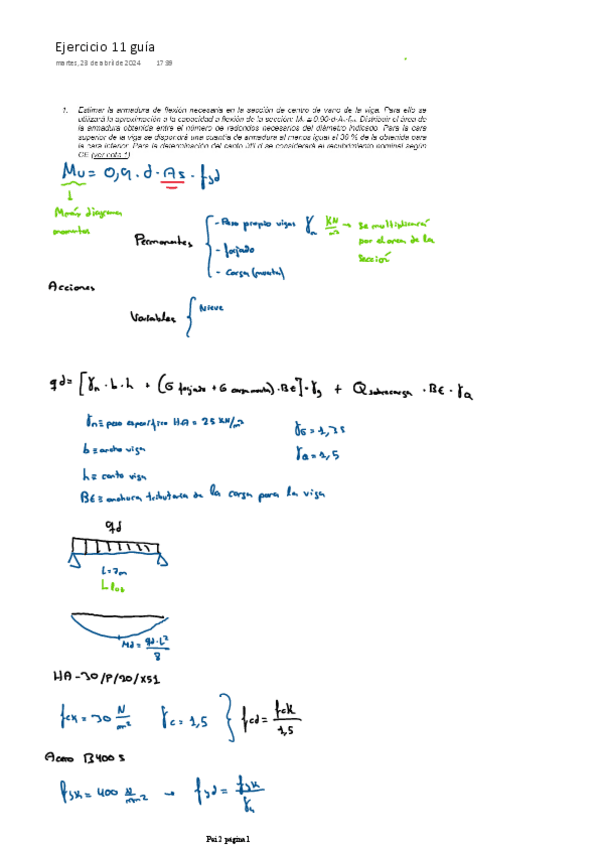 Ejercicio 11 guía
martes, 23 de abril de 2024 17:39
1. Estimar la armadura de flexión necesaria en la sección de centro de vano de la viga. Para ello se
utilizará la aproximación a la capacidad a flexión de la sección: Mᵤ ≅ 0.90·d·Aₛ·fₛd. Distribuir el área de
la armadura obtenida entre el número de redondos necesarios del diámetro indicado. Para la cara
superior de la viga se dispondrá una cuantía de armadura al menos igual al 30 % de la obtenida para
la cara inferior. Para la determinación del canto útil d se considerará el recubrimiento nominal según
CE (ver nota 1)
Mu = 0,9 · d · As · fsd
↓
diagrama
momentos
Permanentes
- Peso propio vigas γn KN/m³ → se multiplicará
por el area de la
sección
- forjado
- Carga (muerta)
Acciones
Variables { Nieve
qd = [γn · b · h + (G forjado + G cm muerta) · Be] · γg + Q sobrecarga · Be · γQ
γn ≡ peso específico HA = 25 KN/m³
γG = 1,35
b ≡ ancho viga
γQ = 1,5
h ≡ canto viga
Be ≡ anchura tributaria de la carga para la viga
qd
L = 7m
Md = qd·L²/8
HA-30/P/20/XS1
fck = 30 N/mm² γc = 1,5 } fcd = fck/1,5
Acero B400S
fsk = 400 N/mm² → fsd = fsk/γs
Psi2 página 1